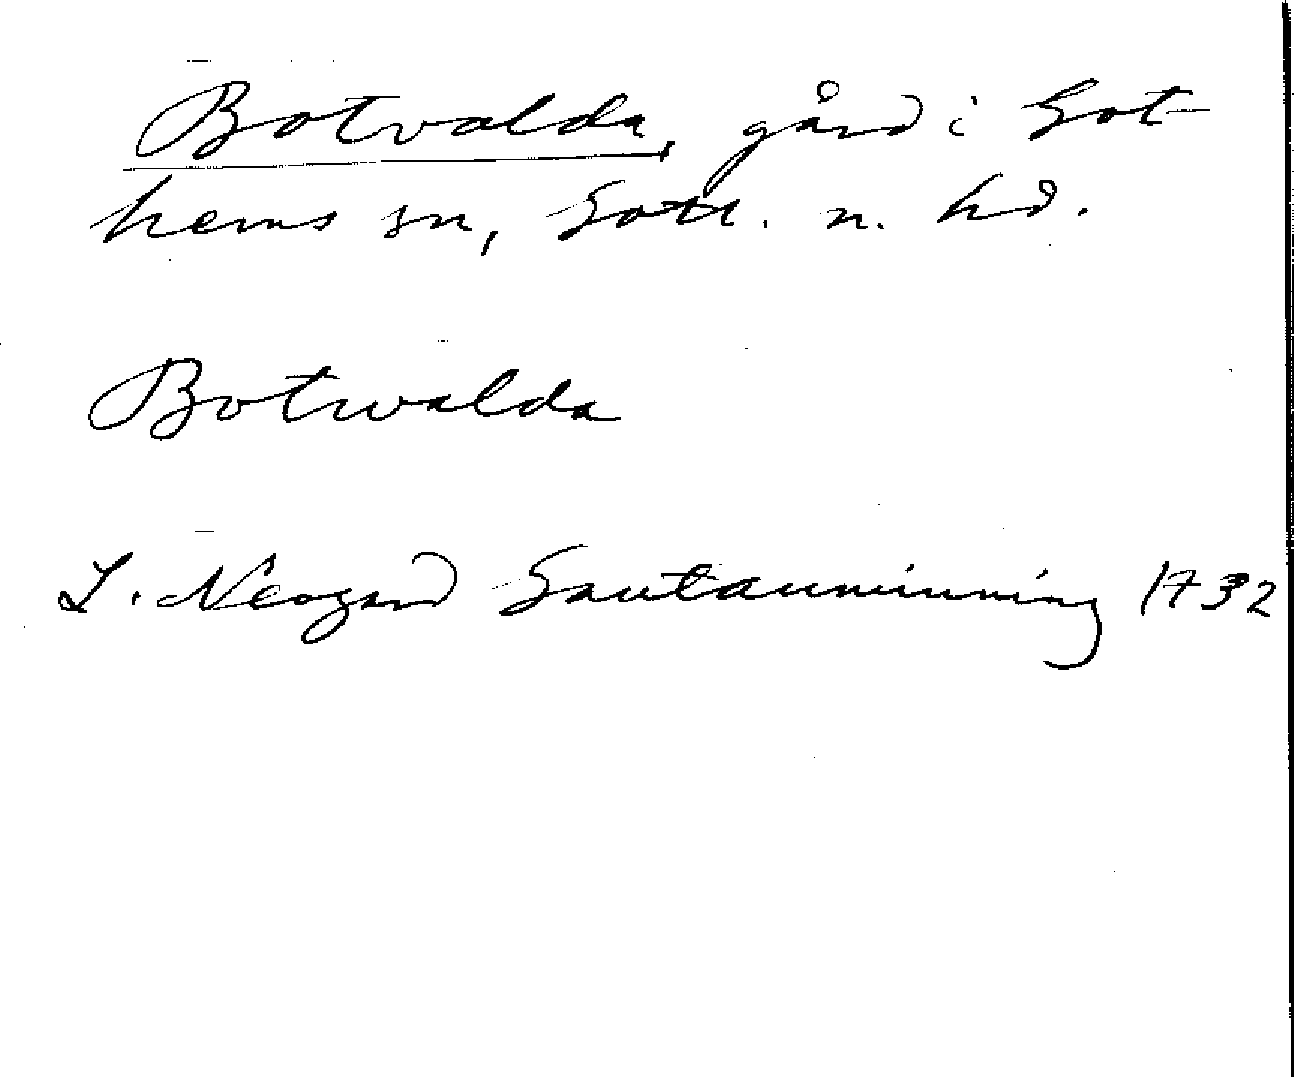 Botvalda, gård i Got
hems sn, Gotl. n. hd.
Botwalda
L. Neogard Gautauminning 1732